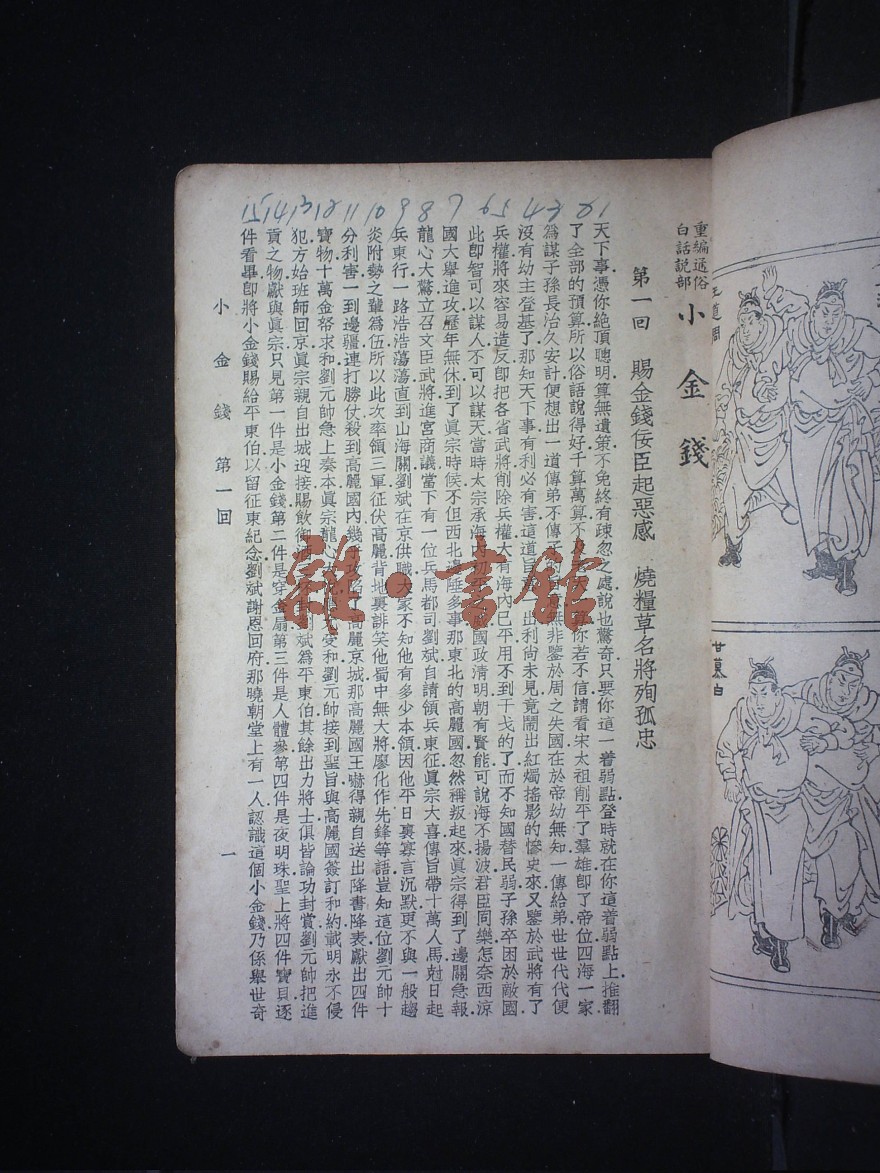 重編通俗
白話說部
小金錢
第一回　賜金錢佞臣起惡感　燒糧草名將殉孤忠
天下事憑你絶頂聰明算無遺策不免終有疎忽之處說也驚奇只要你這一着弱點登時就在你這着弱點上推翻
了全部的預算所以俗語說得好千算萬算不及天一算你若不信請看宋太祖削平了羣雄卽了帝位四海一家
爲謀子孫長治久安計便想出一道傳弟不傳子的無非鑒於周之失國在於帝幼無知一傳給弟世世代代便
沒有幼主登基了那知天下事有利必有害這道旨意一出利尙未見竟鬧出紅燭搖影的慘史來又鑒於武將有了
兵權將來容易造反卽把各省武將削除兵權大有海內已平用不到干戈的了而不知國替民弱子孫卒困於敵國
此卽智可以謀人不可以謀天當時太宗承海內初國政清明朝有賢能可說海不揚波君臣同樂怎奈西涼
國大舉進攻歷年無休到了眞宗時候不但西北邊陲多事那東北的高麗國忽然稱叛起來眞宗得到了邊關急報
龍心大驚立召文臣武將進宮商議當下有一位兵馬都司劉斌自請領兵東征眞宗大喜傳旨帶十萬人馬尅日起
兵東行一路浩浩蕩蕩直到山海關劉斌在京供職大家不知他有多少本領因他平日裏寡言沉默更不與一般趨
炎附勢之輩爲伍所以此次率領三軍征伏高麗背地裏誹笑他蜀中無大將廖化作先鋒等語豈知這位劉元帥十
分利害一到邊疆連打勝仗殺到高麗國內幾乎攻陷了高麗京城那高麗國王嚇得親自送出降書降表獻出四件
寶物十萬金帑求和劉元帥急上奏本眞宗龍心大受和劉元帥接到聖旨與高麗國簽訂和約載明永不侵
犯方始班師回京眞宗親自出城迎接賜飲御酒封劉斌爲平東伯其餘出力將士俱皆論功封賞劉元帥把進
貢之物獻與眞宗只見第一件是小金錢第二件是穿金扇第三件是人體參第四件是夜明珠聖上將四件寶貝逐
件看畢卽將小金錢賜給平東伯以留征東紀念劉斌謝恩回府那曉朝堂上有一人認識這個小金錢乃係舉世奇
小金錢　第一回
一
1 2 3 4 5 6 7 8 9 10 11 12 13 14 15
雜·書館